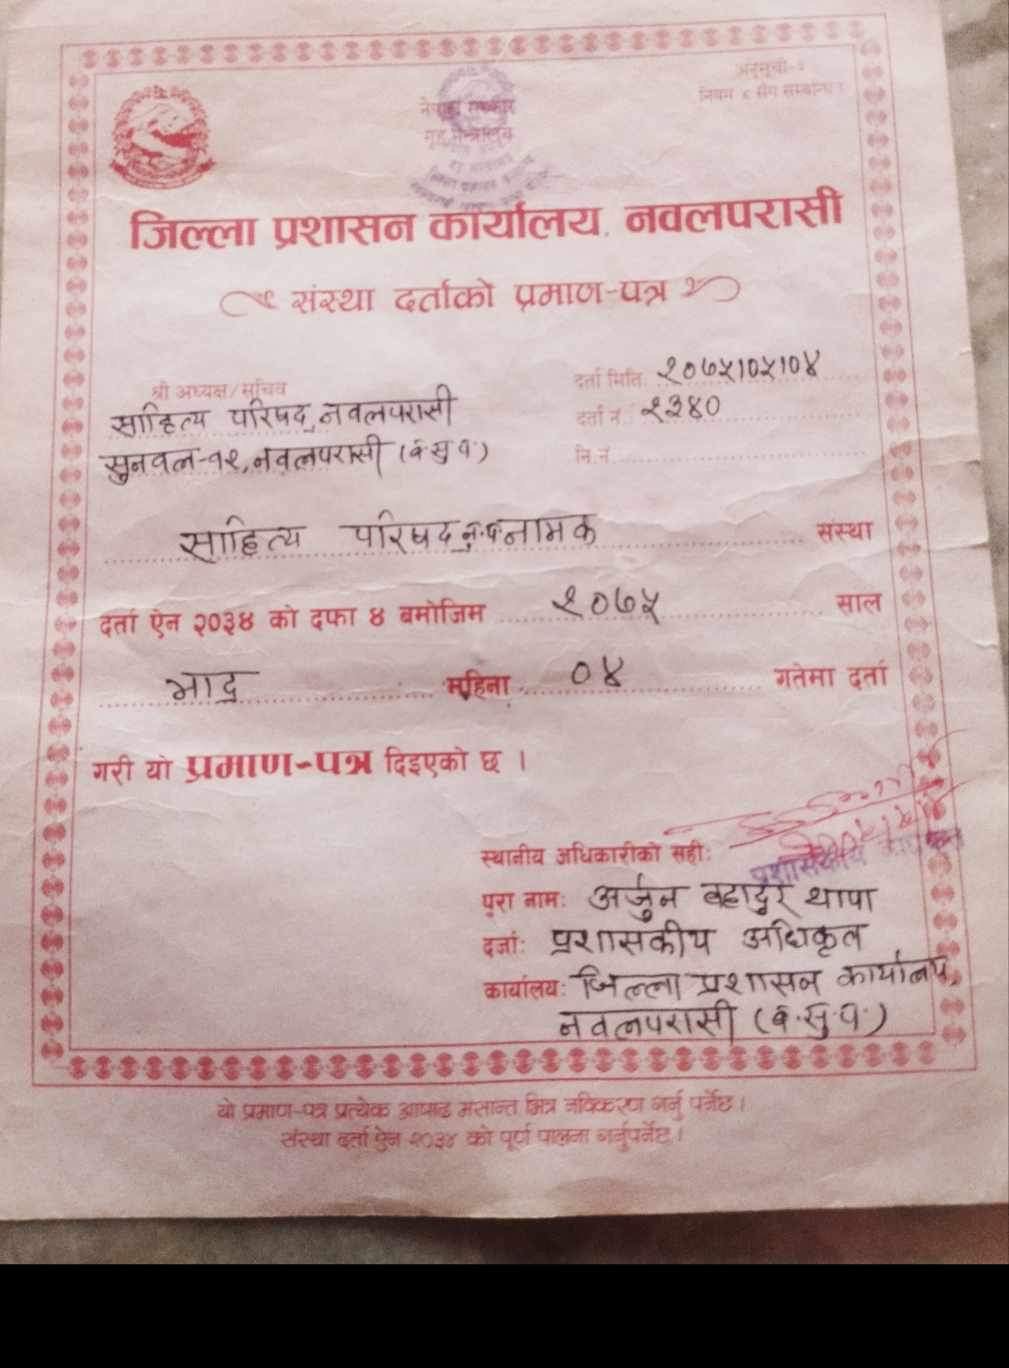 अनुसूची-२
नियम ४ सँग सम्बन्धित
नेपाल सरकार
गृह मन्त्रालय
जिल्ला प्रशासन कार्यालय, नवलपरासी
संस्था दर्ताको प्रमाण-पत्र
श्री अध्यक्ष/सचिव
दर्ता मिति: २०७५।०५।०४
साहित्य परिषद्, नवलपरासी
दर्ता नं. २३४०
सुनवल-१२, नवलपरासी (ब.सु.प.)
नि.नं.
साहित्य परिषद् न.प. नामक संस्था
दर्ता ऐन २०३४ को दफा ४ बमोजिम २०७५ साल
भाद्र महिना ०४ गतेमा दर्ता
गरी यो प्रमाण-पत्र दिइएको छ ।
स्थानीय अधिकारीको सही:
प्रशासकीय
पुरा नाम: अर्जुन बहादुर थापा
दर्जा: प्रशासकीय अधिकृत
कार्यालय: जिल्ला प्रशासन कार्यालय,
नवलपरासी (ब.सु.प.)
यो प्रमाण-पत्र प्रत्येक आषाढ मसान्त भित्र नविकरण गर्नु पर्नेछ ।
संस्था दर्ता ऐन २०३४ को पूर्ण पालना गर्नुपर्नेछ ।